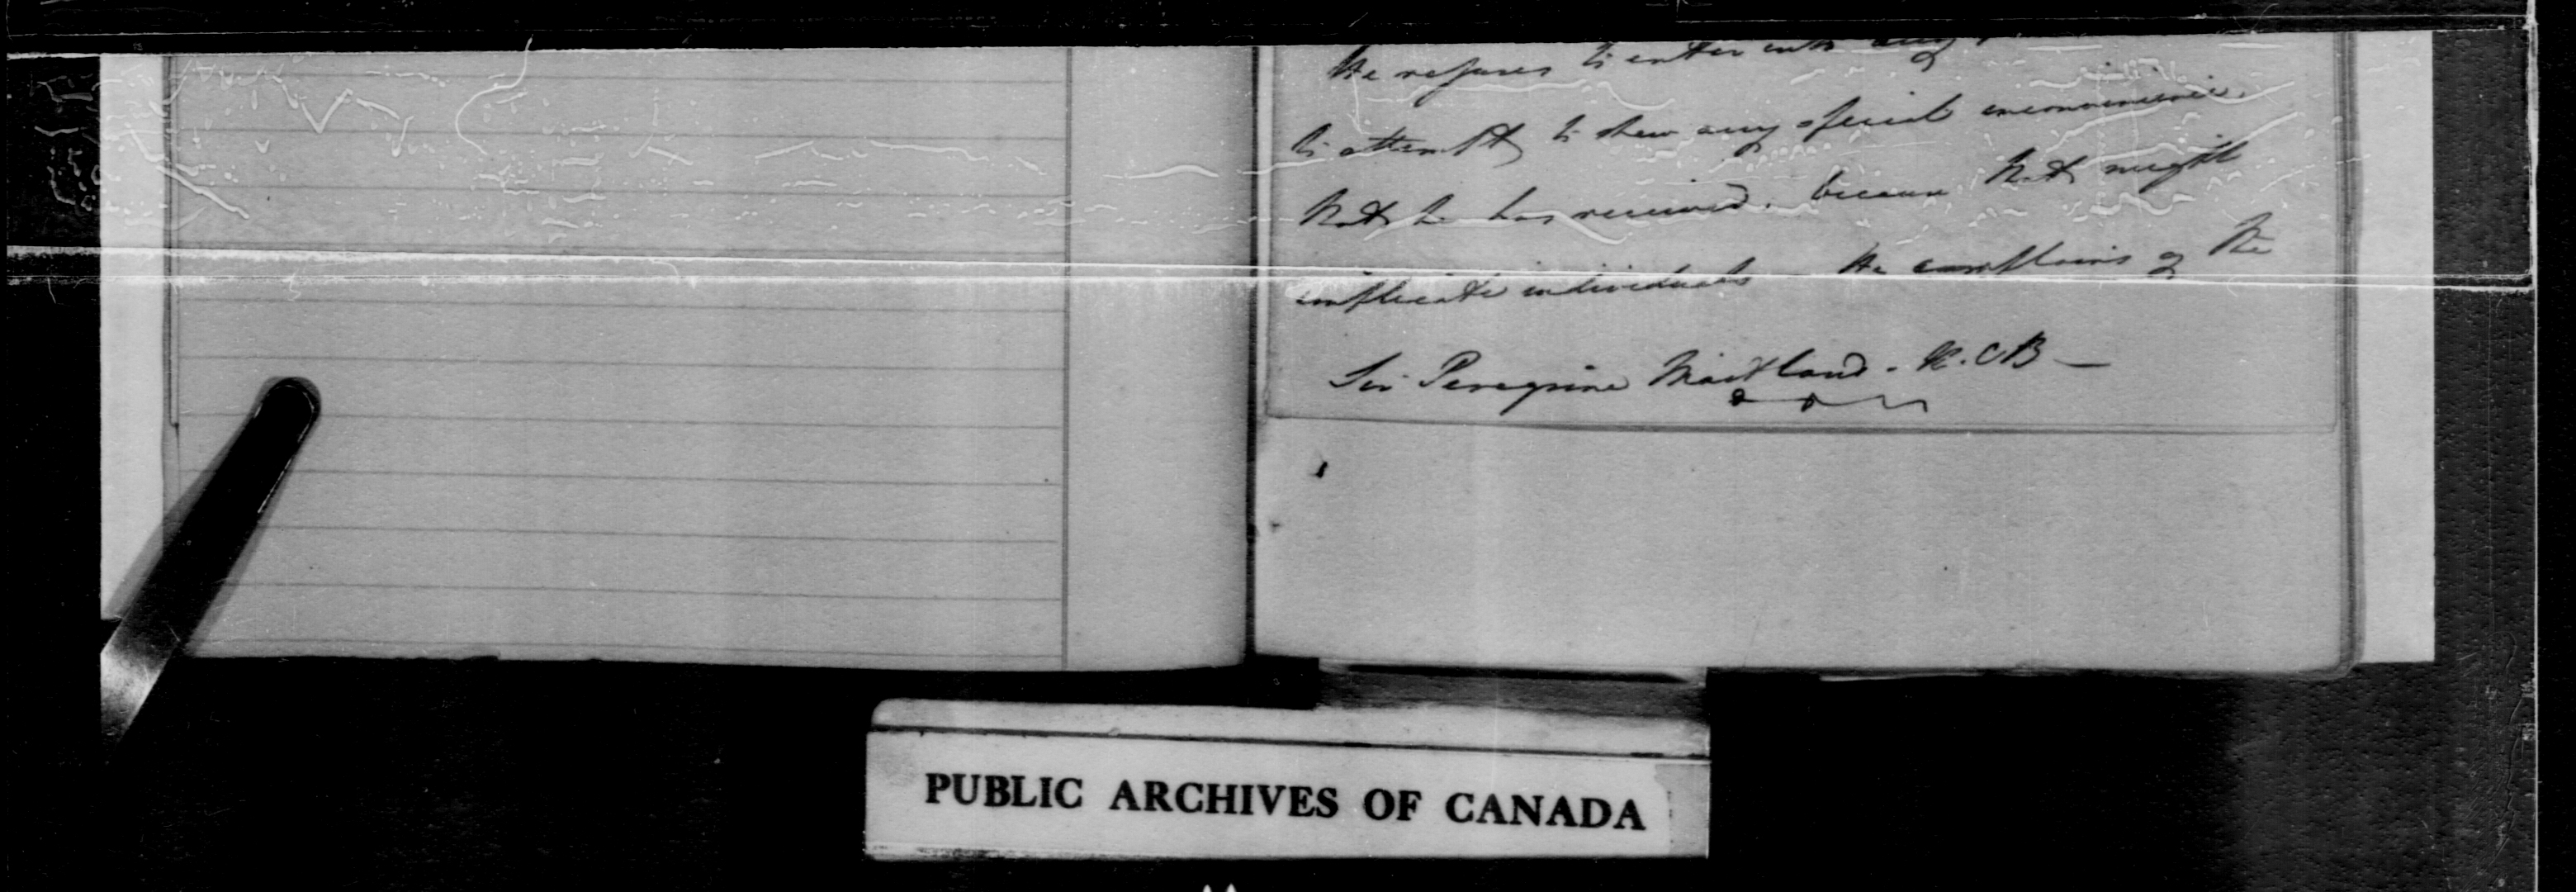 He refuses to enter into any
to attempt to shew any special inconvenience
that he has received. because that might
implicate individuals - He complains of the
Sir Peregrine Maitland. K.C.B —
PUBLIC ARCHIVES OF CANADA